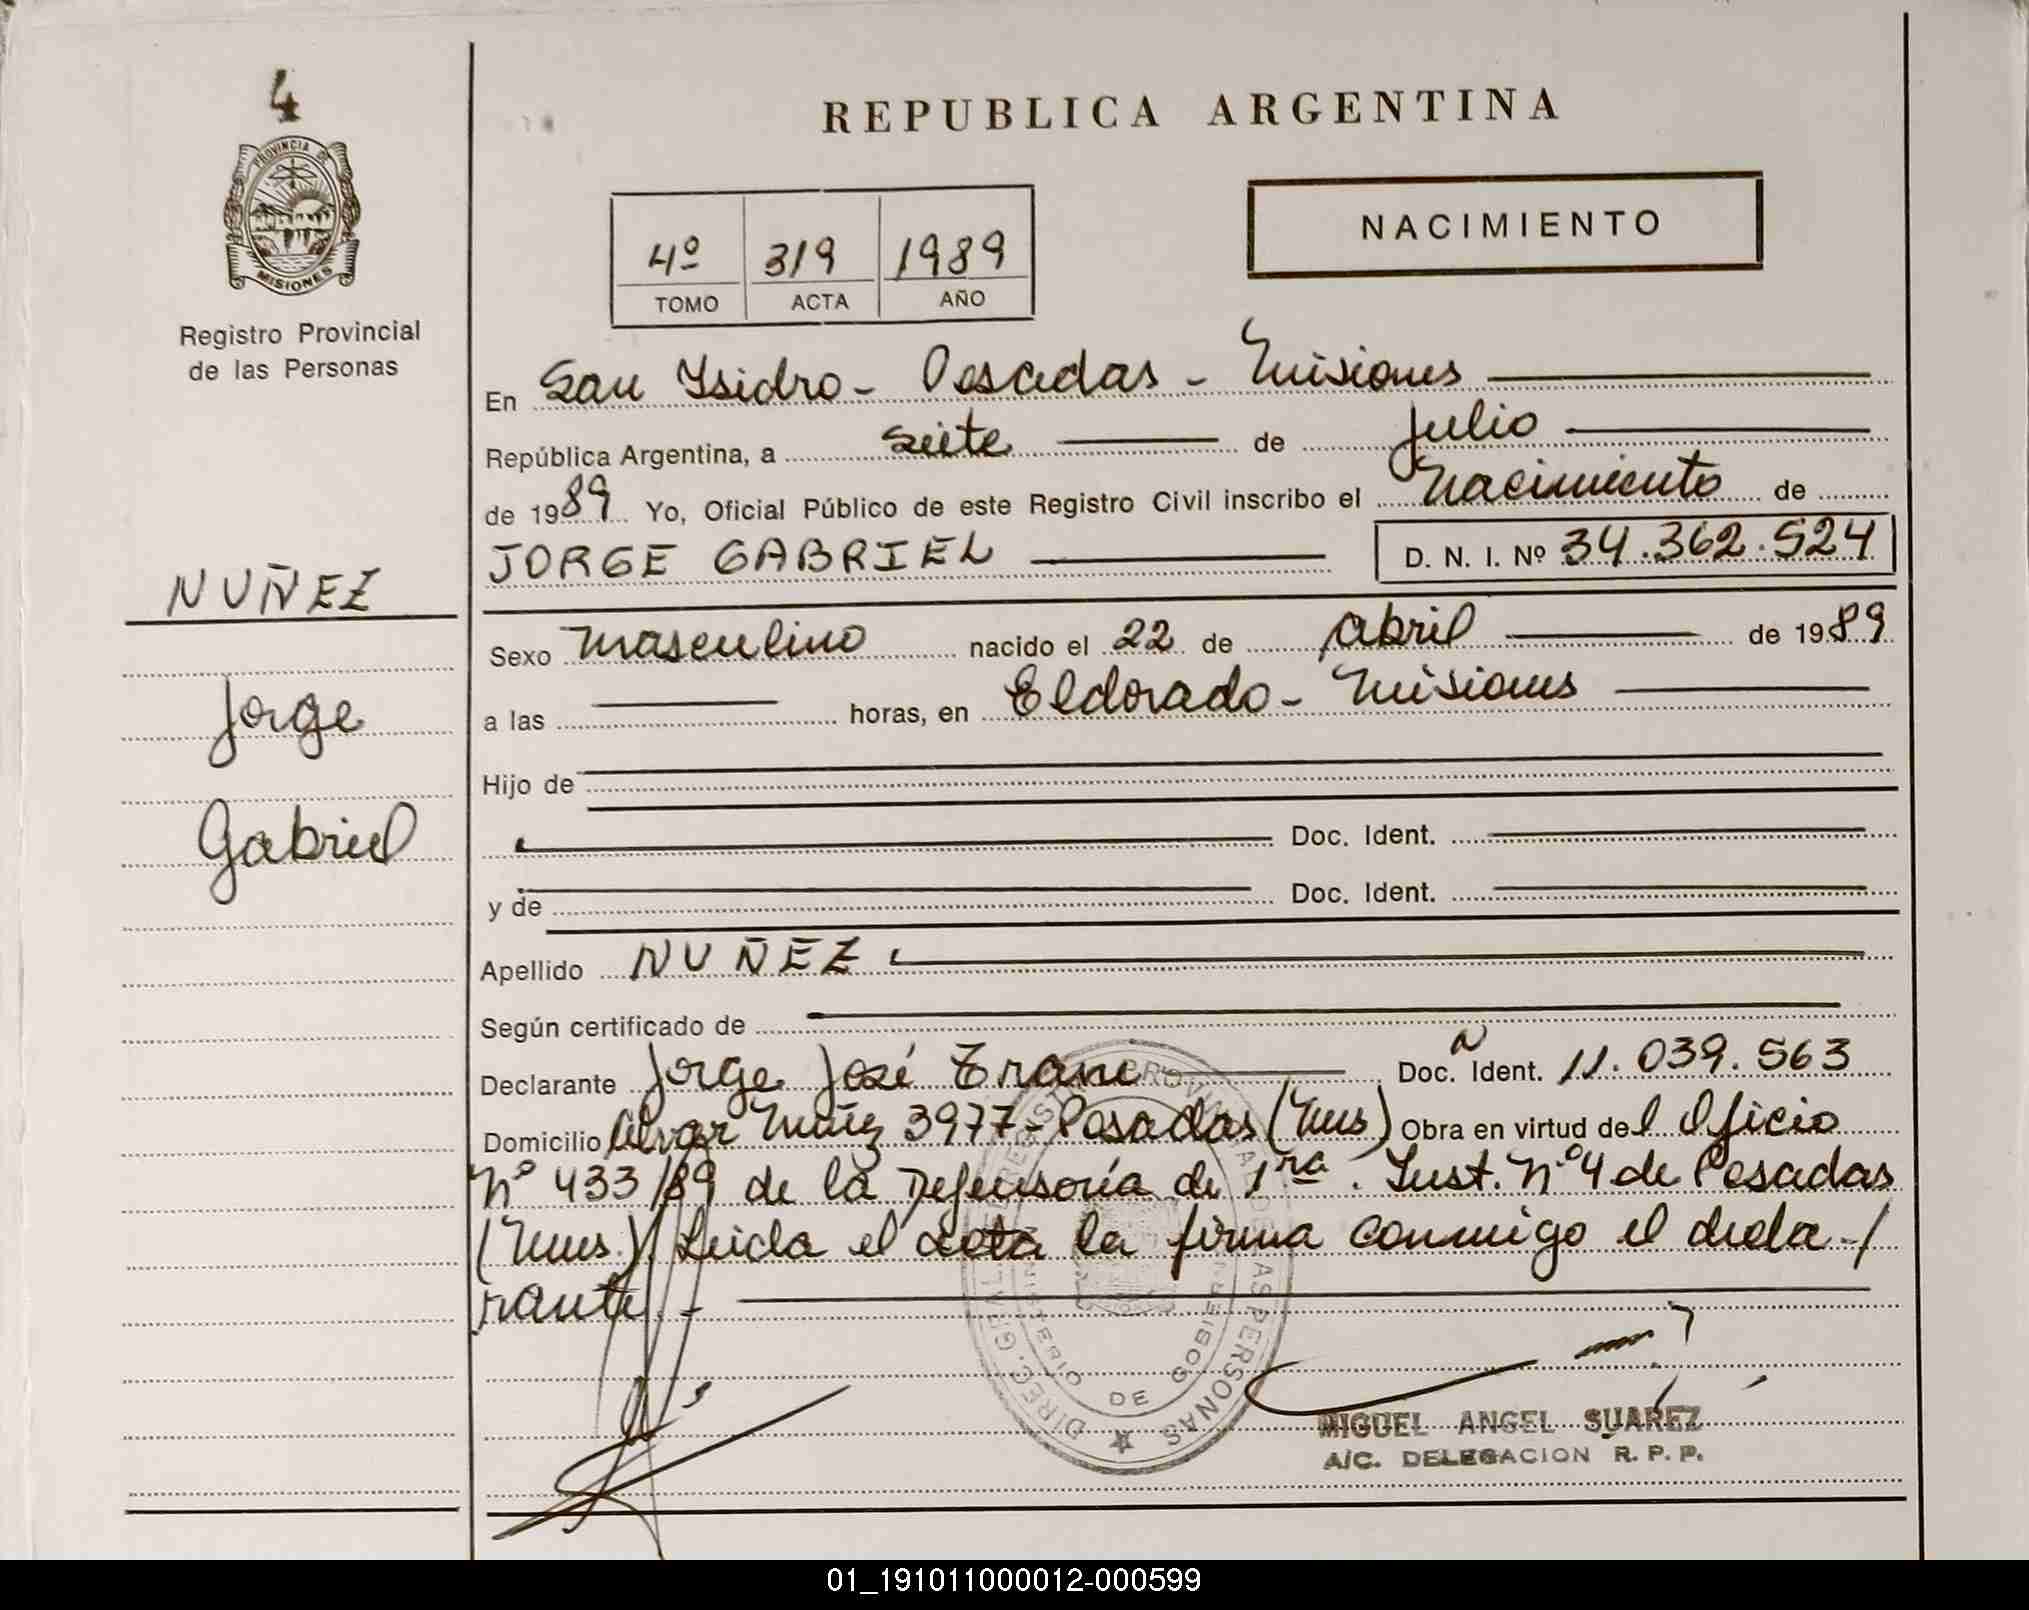 4
PROVINCIA DE
MISIONES
Registro Provincial
de las Personas
NUÑEZ
Jorge
Gabriel
REPUBLICA ARGENTINA
4º 319 1989
TOMO ACTA AÑO
NACIMIENTO
En San Isidro - Posadas - Misiones
República Argentina, a siete de Julio
de 1989 Yo, Oficial Público de este Registro Civil inscribo el Nacimiento de
JORGE GABRIEL D. N. I. Nº 34.362.524
Sexo masculino nacido el 22 de abril de 1989
a las horas, en Eldorado - Misiones
Hijo de
Doc. Ident.
y de Doc. Ident.
Apellido NUÑEZ
Según certificado de
Declarante Jorge José Doc. Ident. 11.039.563
Domicilio Alvar Nuñez 3977 - Posadas (Mnes) Obra en virtud del Oficio
Nº 433/89 de la Defensoría de 1ra. Inst. Nº 4 de Posadas
(Mnes.) Leida el acta la firma conmigo el decla-/
rante.-
DIREC. GRAL. DE REGISTRO PROVINCIAL DE LAS PERSONAS
MINISTERIO DE GOBIERNO
MIGUEL ANGEL SUAREZ
A/C. DELEGACION R. P. P.
01_191011000012-000599